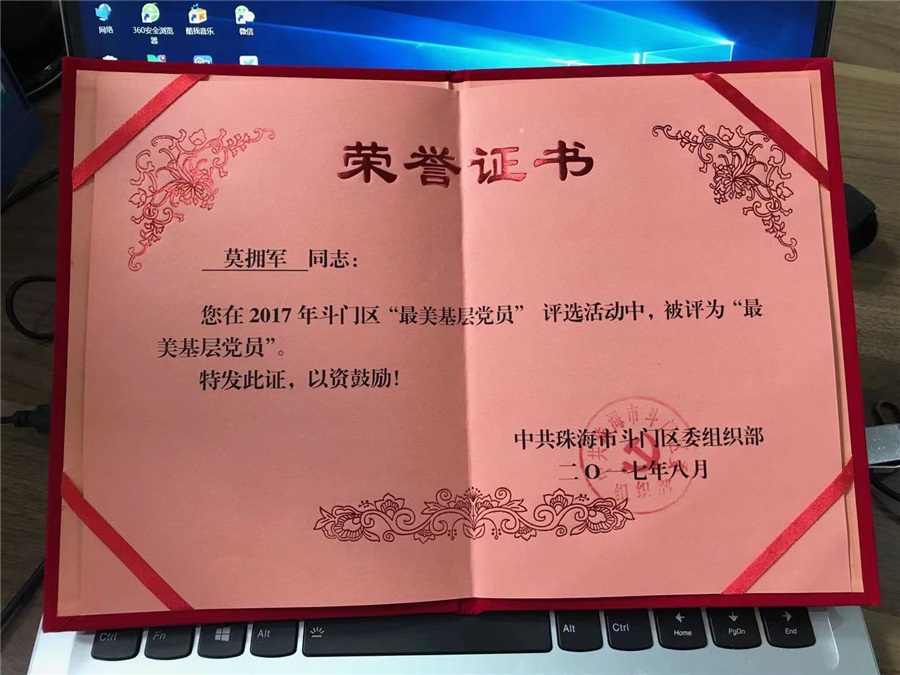 网络
360安全浏览器
酷我音乐
微信
荣誉证书
莫拥军 同志：
您在 2017 年斗门区“最美基层党员” 评选活动中，被评为“最
美基层党员”。
特发此证，以资鼓励！
中共珠海市斗门区委组织部
二〇一七年八月
Ctrl
Fn
Alt
Alt
Ctrl
Home
PgDn
End